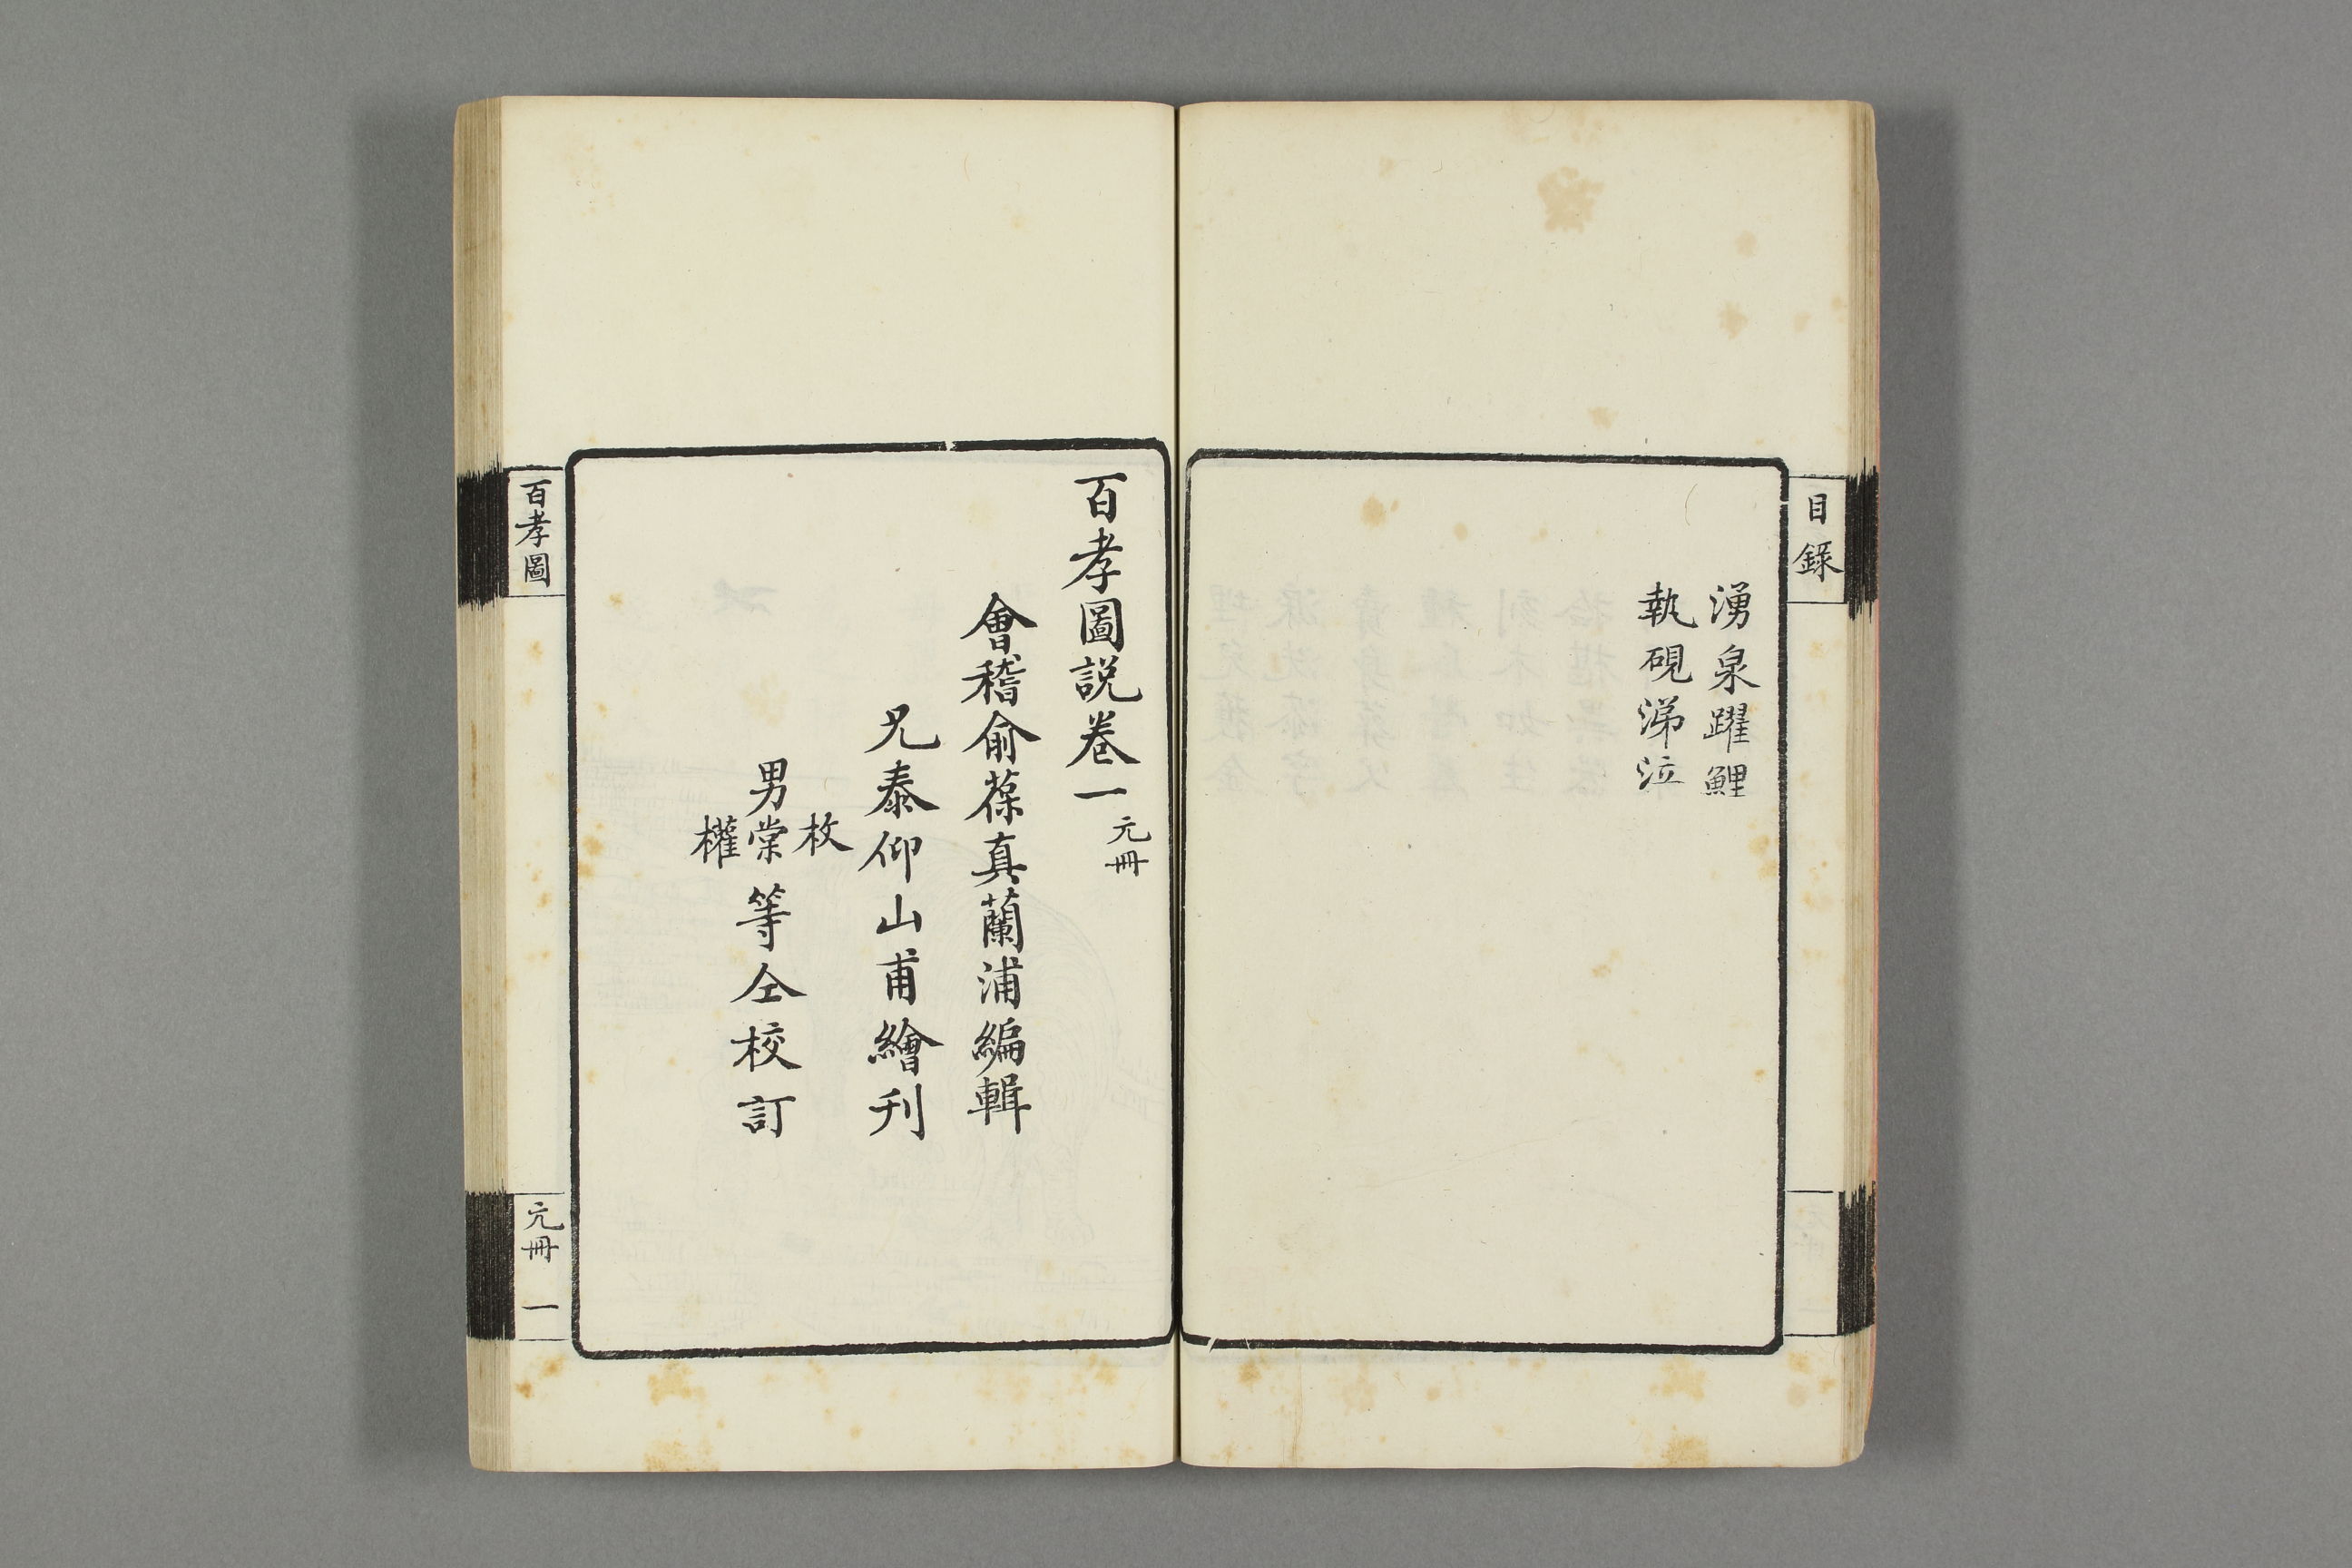 目錄
湧泉躍鯉
執硯涕泣
百孝圖説卷一 元冊
會稽俞葆真蘭浦編輯
兄泰仰山甫繪刋
枚
男棠等仝校訂
權
百孝圖
元冊
一